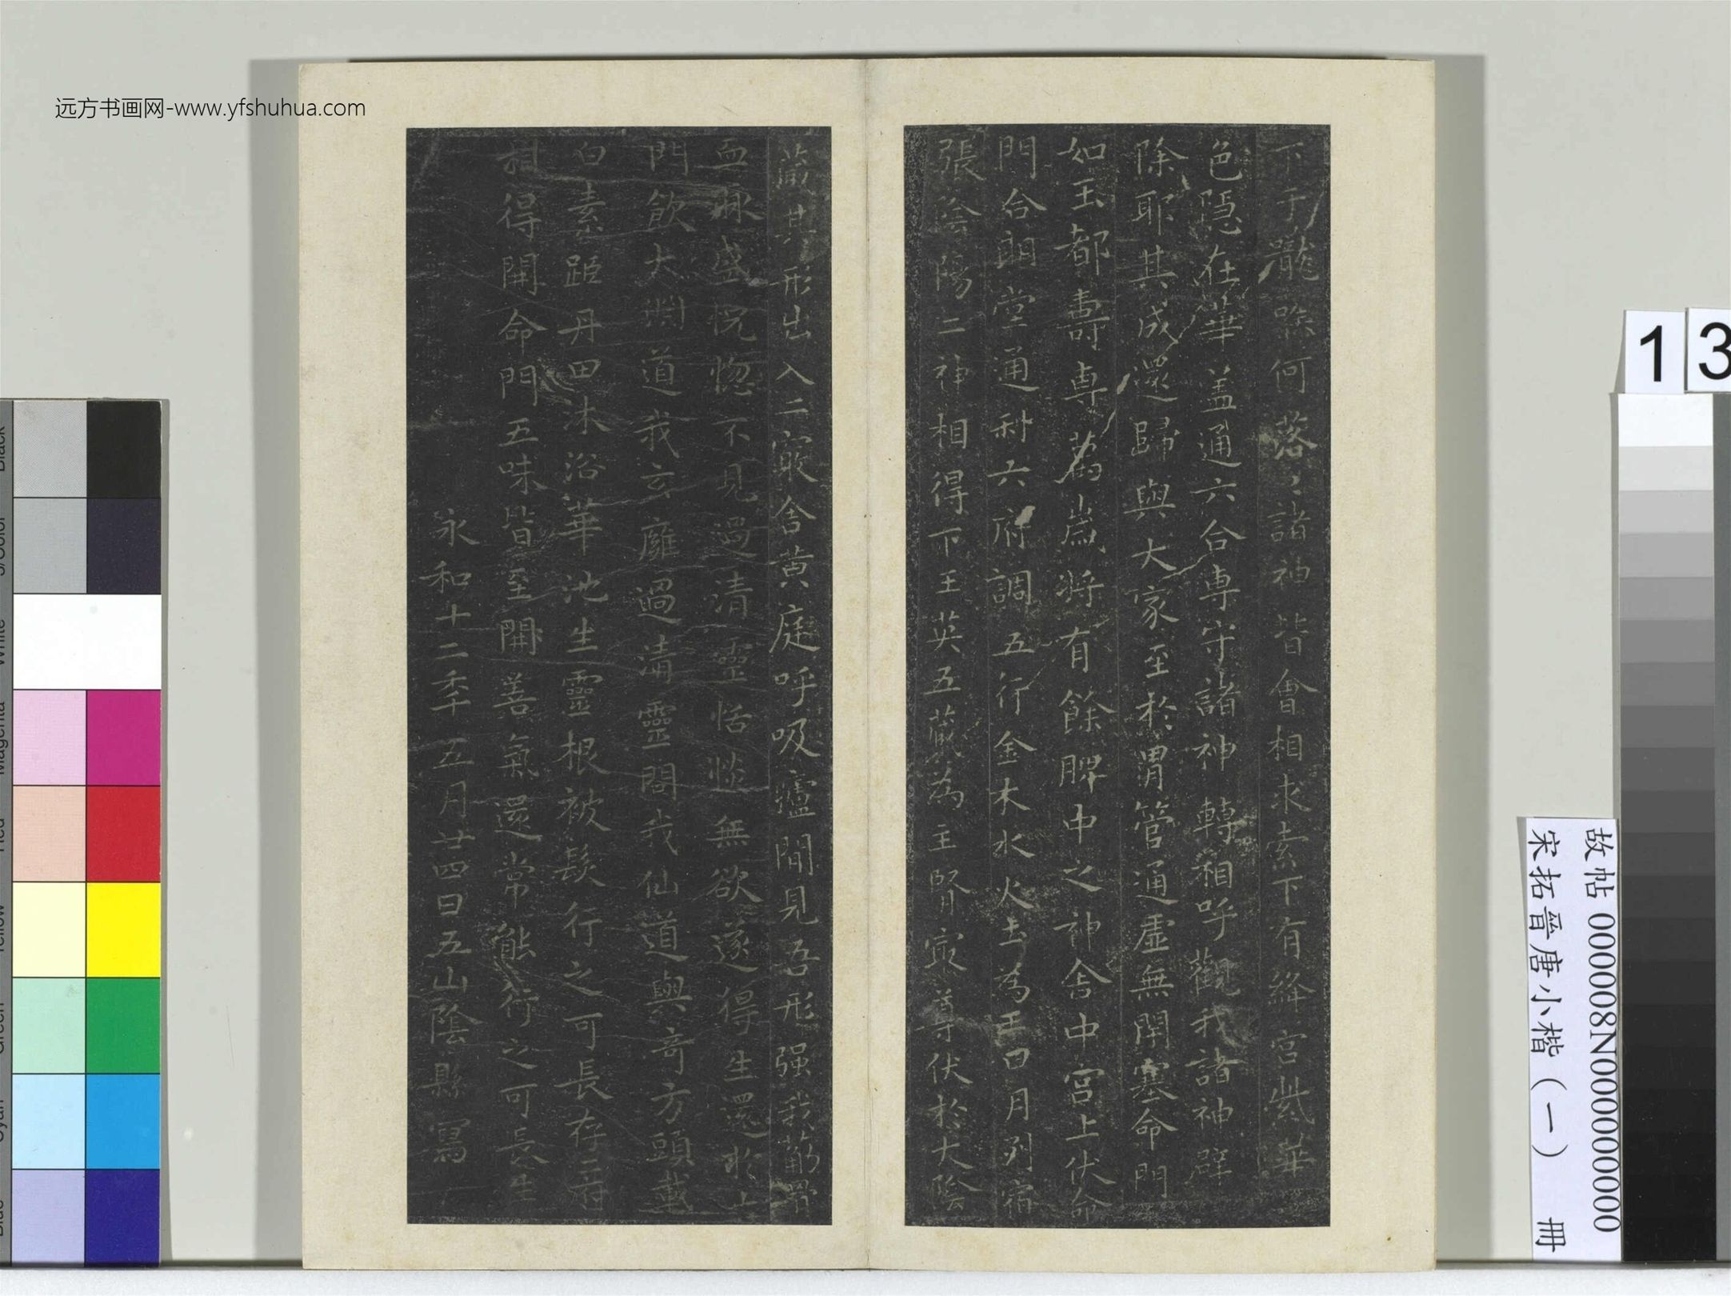 下于嚨喉何落〻諸神皆會相求索下有絳宮紫華
色隱在華盖通六合專守諸神轉相呼觀我諸神辟
除耶其成還歸與大家至於胃管通虛無閉塞命門
如玉都壽専萬歲將有餘脾中之神舎中宮上伏命
門合明堂通利六府調五行金木水火土為王日月列宿
張陰陽二神相得下玉英五藏為主腎㝡尊伏於大陰
藏其形出入二竅舎黄庭呼吸廬間見吾形强我筋骨
血脉盛怳惚不見過清靈恬惔無欲遂得生還於七
門飲大淵道我玄廱過清靈問我仙道與奇方頭載
白素距丹田沐浴華池生靈根被髮行之可長存二府
相得開命門五味皆至開善氣還常能行之可長生
永和十二年五月廿四日五山陰縣寫
远方书画网-www.yfshuhua.com
13
故帖 000008N000000000
宋拓晉唐小楷(一) 冊
Black
3/Color
White
Magenta
Red
Yellow
Green
Cyan
Blue